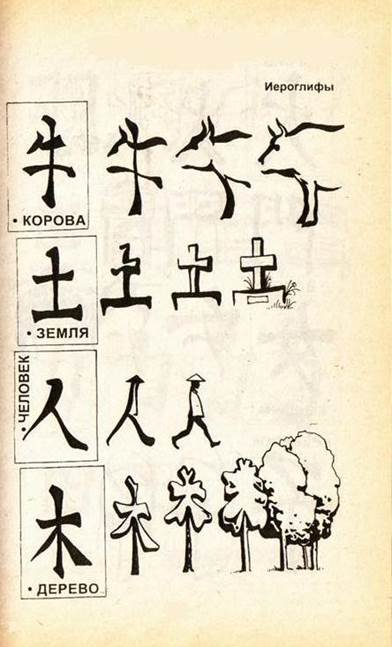 Иероглифы
牛
• КОРОВА
土
• ЗЕМЛЯ
• ЧЕЛОВЕК
人
木
• ДЕРЕВО